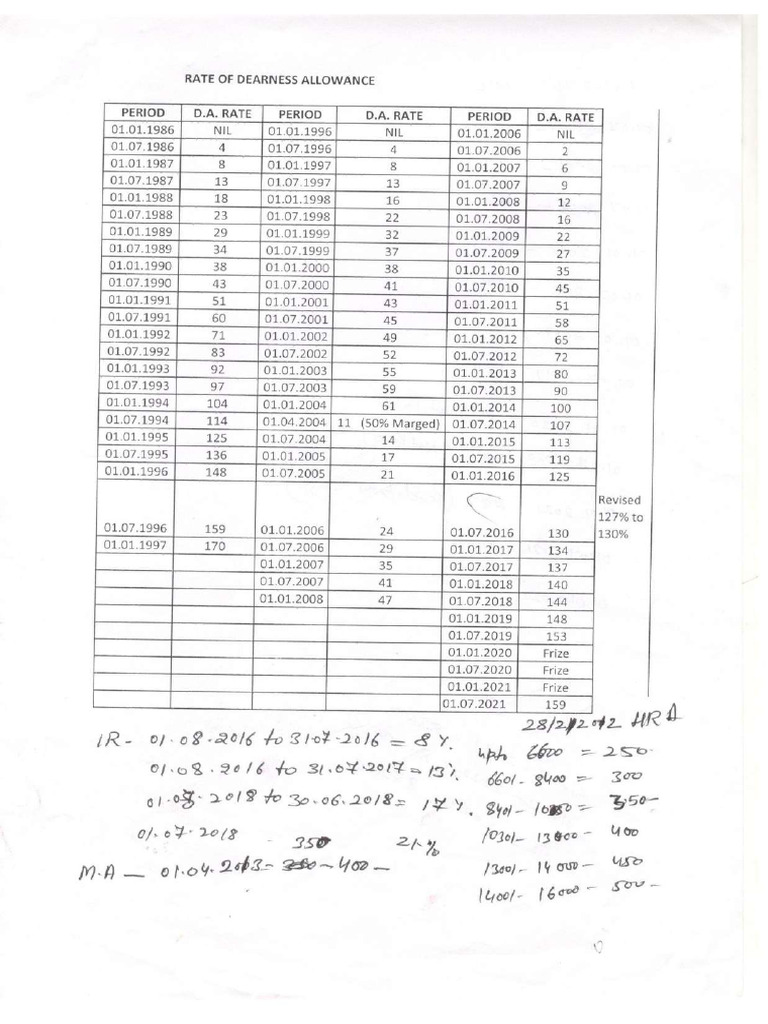 RATE OF DEARNESS ALLOWANCE
PERIOD D.A. RATE PERIOD D.A. RATE PERIOD D.A. RATE
01.01.1986 NIL 01.01.1996 NIL 01.01.2006 NIL
01.07.1986 4 01.07.1996 4 01.07.2006 2
01.01.1987 8 01.01.1997 8 01.01.2007 6
01.07.1987 13 01.07.1997 13 01.07.2007 9
01.01.1988 18 01.01.1998 16 01.01.2008 12
01.07.1988 23 01.07.1998 22 01.07.2008 16
01.01.1989 29 01.01.1999 32 01.01.2009 22
01.07.1989 34 01.07.1999 37 01.07.2009 27
01.01.1990 38 01.01.2000 38 01.01.2010 35
01.07.1990 43 01.07.2000 41 01.07.2010 45
01.01.1991 51 01.01.2001 43 01.01.2011 51
01.07.1991 60 01.07.2001 45 01.07.2011 58
01.01.1992 71 01.01.2002 49 01.01.2012 65
01.07.1992 83 01.07.2002 52 01.07.2012 72
01.01.1993 92 01.01.2003 55 01.01.2013 80
01.07.1993 97 01.07.2003 59 01.07.2013 90
01.01.1994 104 01.01.2004 61 01.01.2014 100
01.07.1994 114 01.04.2004 11 (50% Marged) 01.07.2014 107
01.01.1995 125 01.07.2004 14 01.01.2015 113
01.07.1995 136 01.01.2005 17 01.07.2015 119
01.01.1996 148 01.07.2005 21 01.01.2016 125
Revised
127% to
130%
01.07.1996 159 01.01.2006 24 01.07.2016 130
01.01.1997 170 01.07.2006 29 01.01.2017 134
01.01.2007 35 01.07.2017 137
01.07.2007 41 01.01.2018 140
01.01.2008 47 01.07.2018 144
01.01.2019 148
01.07.2019 153
01.01.2020 Frize
01.07.2020 Frize
01.01.2021 Frize
01.07.2021 159
28/2/2012 HRA
IR- 01.08.2016 to 31.07.2016 = 8%.
01.08.2016 to 31.07.2017 = 13%
2018 to 30.06.2018 = 17%.
01.07.2018 21%
350
M.A - 01.04.2013 - 400 -
upto 6600 = 250-
6601- 8400 = 300
8401- = 350-
10301- 400
13001- 14000- 450
14001- 16000- 500-